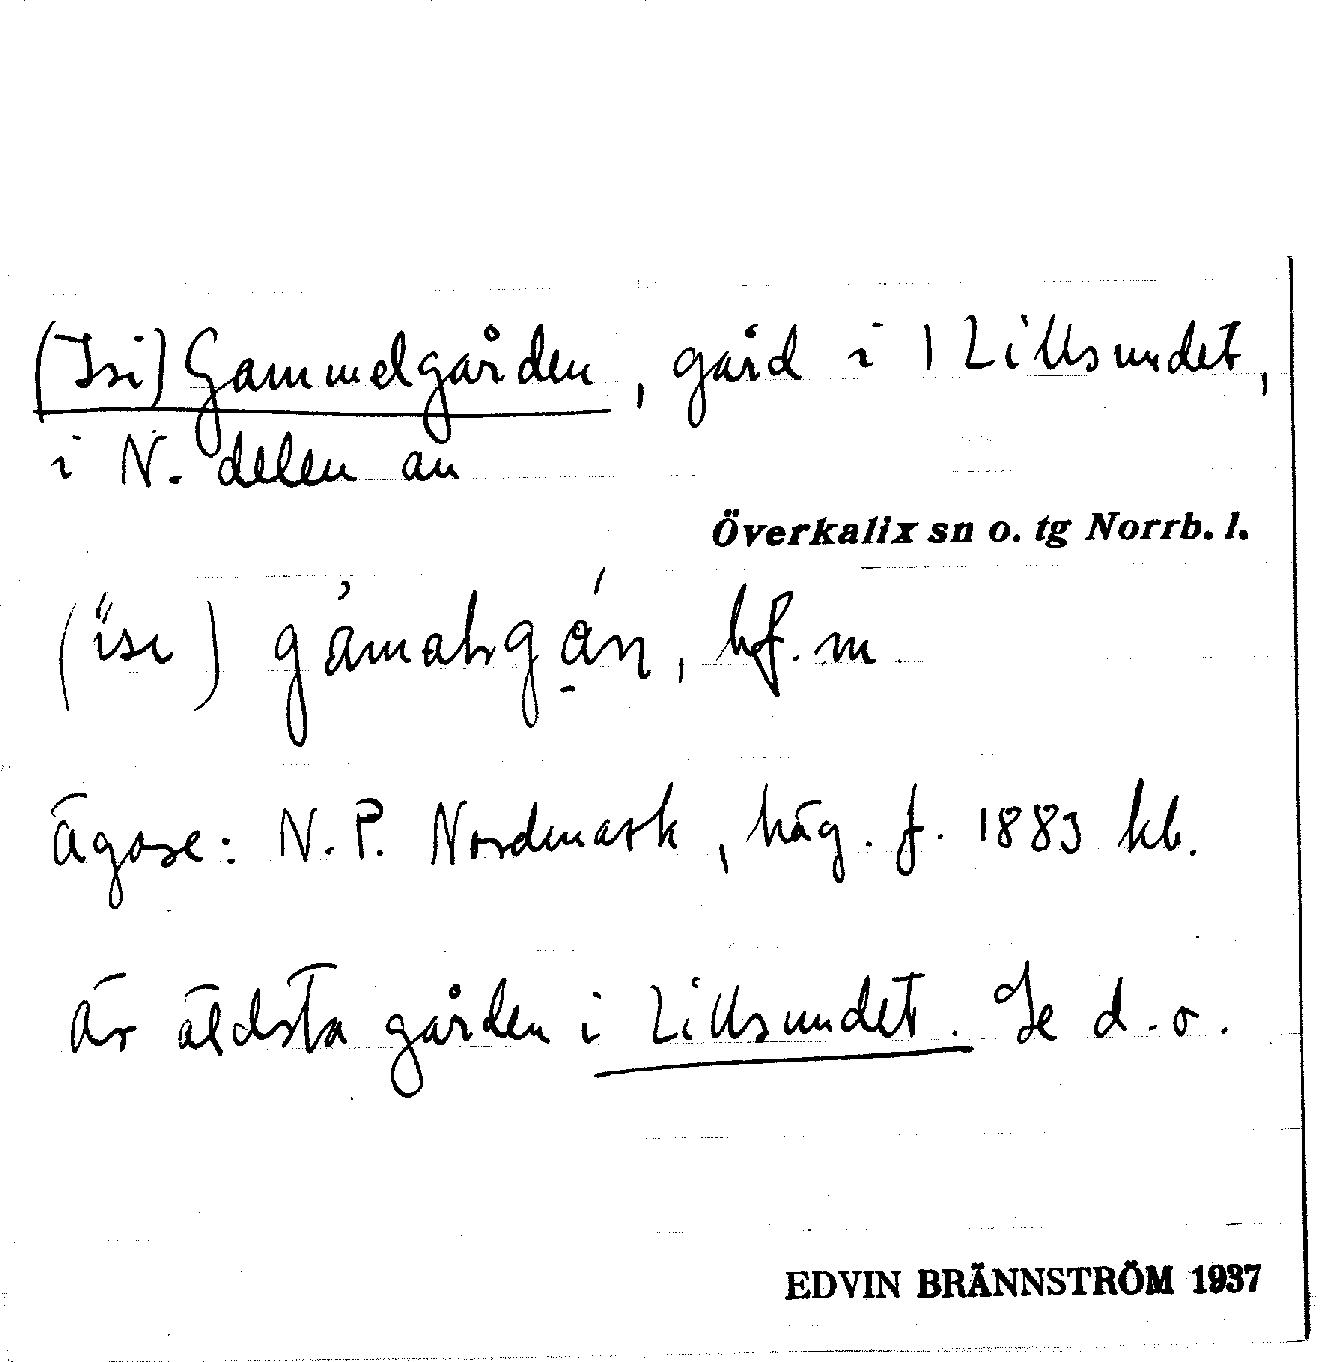 (Isi) Gammelgården, gård i 1 Lillsundet,
i N. delen av
Överkalix sn o. tg Norrb. l.
hf. m
Ägare: N. P. Nordmark, häg. f. 1883 kb.
Är äldsta gården i Lillsundet. Se d. o.
EDVIN BRÄNNSTRÖM 1937